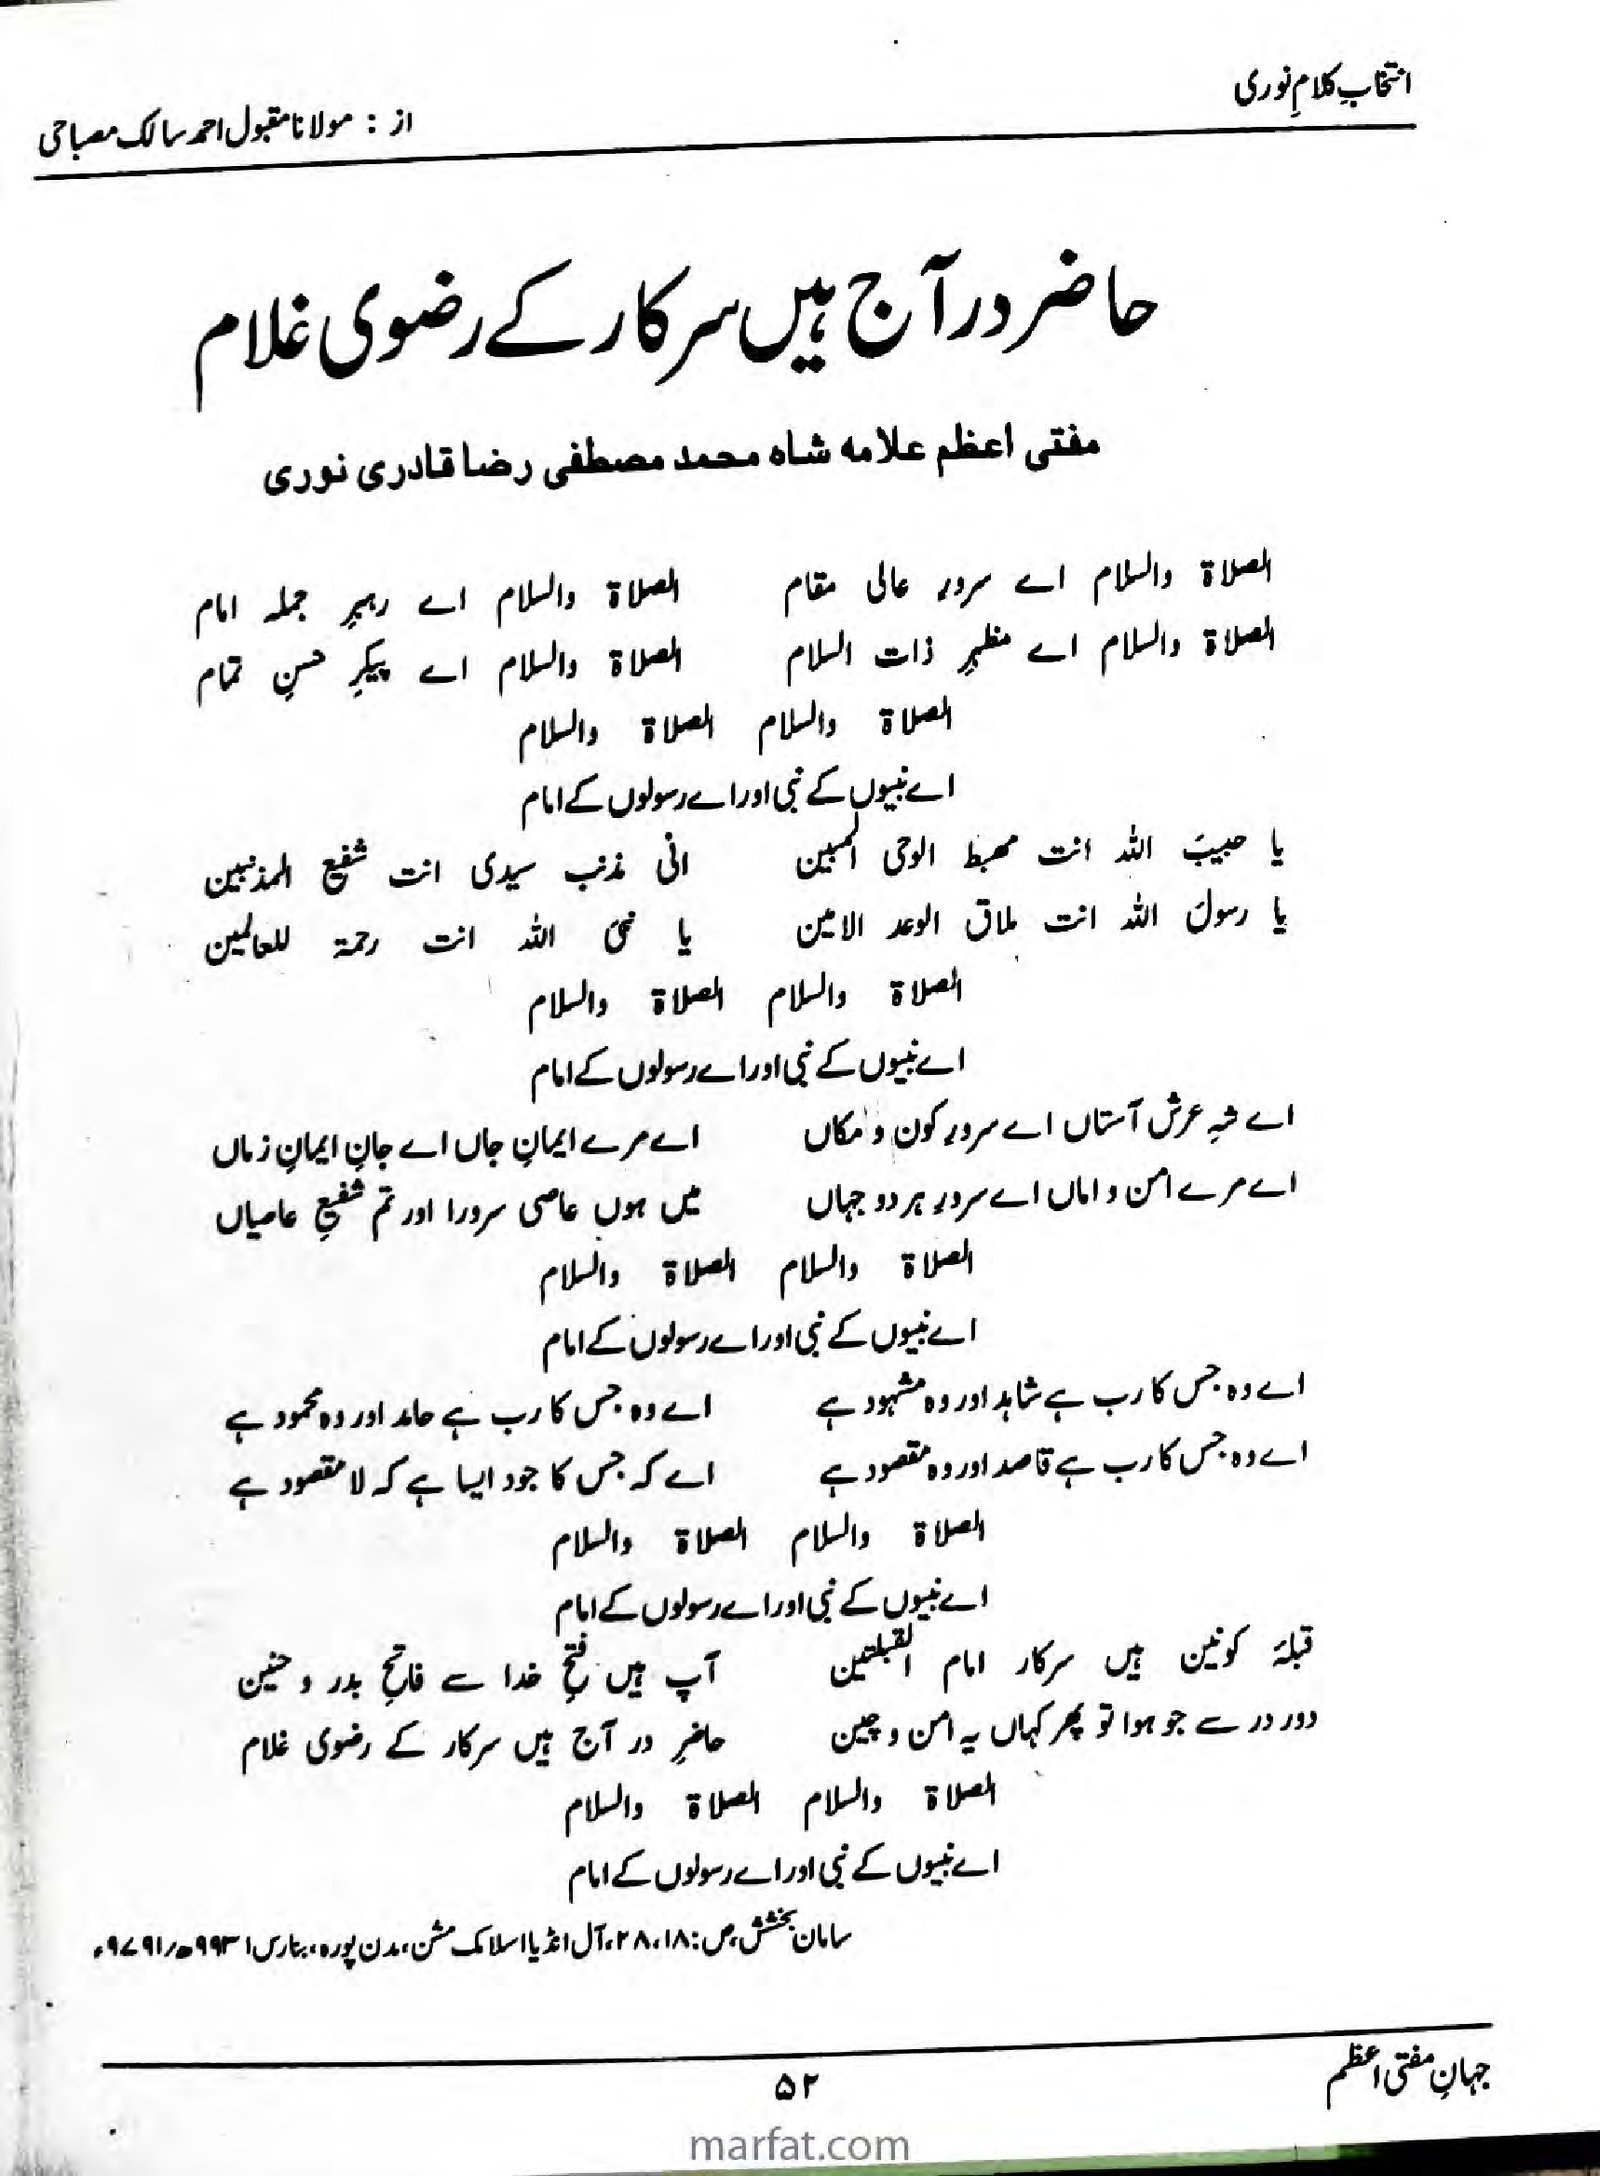 انتخابِ کلامِ نوری
از : مولانا مقبول احمد سالک مصباحی
حاضر در آج ہیں سرکار کے رضوی غلام
مفتی اعظم علامہ شاہ محمد مصطفی رضا قادری نوری
الصلاۃ والسلام اے سرورِ عالی مقام الصلاۃ والسلام اے رہبرِ جملہ امام
الصلاۃ والسلام اے مظہرِ ذات السلام الصلاۃ والسلام اے پیکرِ حسنِ تمام
الصلاۃ والسلام الصلاۃ والسلام
اے نبیوں کے نبی اور اے رسولوں کے امام
یا حبیبَ اللہ انت مھبط الوحی المبین انی مذنب سیدی انت شفیع المذنبین
یا رسولَ اللہ انت ملاق الوعد الامین یا نبیَ اللہ انت رحمۃ للعالمین
الصلاۃ والسلام الصلاۃ والسلام
اے نبیوں کے نبی اور اے رسولوں کے امام
اے شہِ عرش آستاں اے سرورِ کون و مکاں اے مرے ایمانِ جاں اے جانِ ایمانِ زماں
اے مرے امن و اماں اے سرورِ ہر دو جہاں میں ہوں عاصی سرورا اور تم شفیعِ عاصیاں
الصلاۃ والسلام الصلاۃ والسلام
اے نبیوں کے نبی اور اے رسولوں کے امام
اے وہ جس کا رب ہے شاہد اور وہ مشہود ہے اے وہ جس کا رب ہے حامد اور وہ محمود ہے
اے وہ جس کا رب ہے قاصد اور وہ مقصود ہے اے کہ جس کا جود ایسا ہے کہ لا مقصود ہے
الصلاۃ والسلام الصلاۃ والسلام
اے نبیوں کے نبی اور اے رسولوں کے امام
قبلۂ کونین ہیں سرکار امام القبلتین آپ ہیں فتحِ خدا سے فاتحِ بدر و حنین
دور در سے جو ہوا تو پھر کہاں یہ امن و چین حاضرِ در آج ہیں سرکار کے رضوی غلام
الصلاۃ والسلام الصلاۃ والسلام
اے نبیوں کے نبی اور اے رسولوں کے امام
سامان بخشش، ص: ۲۸،۱۸، آل انڈیا اسلامک مشن، مدن پورہ، بنارس
جہانِ مفتی اعظم
۵۲
marfat.com